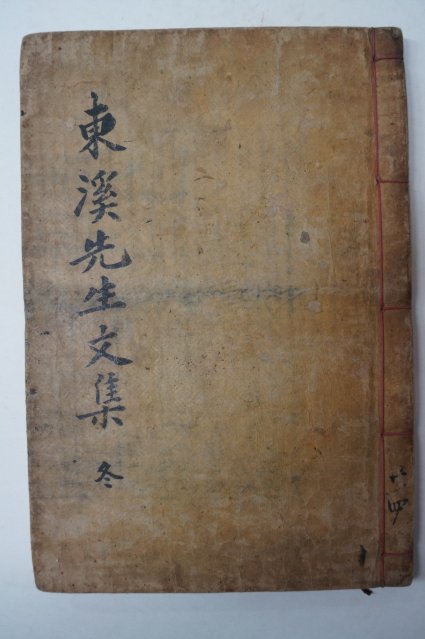 東溪先生文集 冬
共四